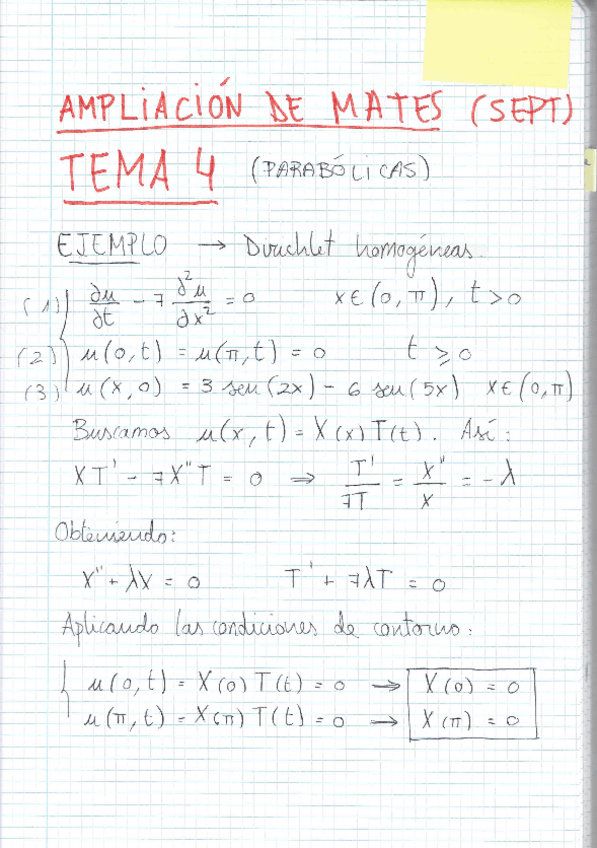 AMPLIACIÓN DE MATES (SEPT)
TEMA 4 (PARABÓLICAS)
EJEMPLO → Dirichlet homogéneas.
(1) ∂u/∂t - 7 ∂²u/∂x² = 0 x∈(0, π), t>0
(2) u(0,t) = u(π,t) = 0 t ⩾ 0
(3) u(x,0) = 3 sen(2x) - 6 sen(5x) x∈(0,π)
Buscamos u(x,t) = X(x)T(t). Así:
XT' - 7X''T = 0 ⇒ T'/7T = X''/X = -λ
Obteniendo:
X'' + λX = 0 T' + 7λT = 0
Aplicando las condiciones de contorno:
u(0,t) = X(0)T(t) = 0 → X(0) = 0
u(π,t) = X(π)T(t) = 0 → X(π) = 0